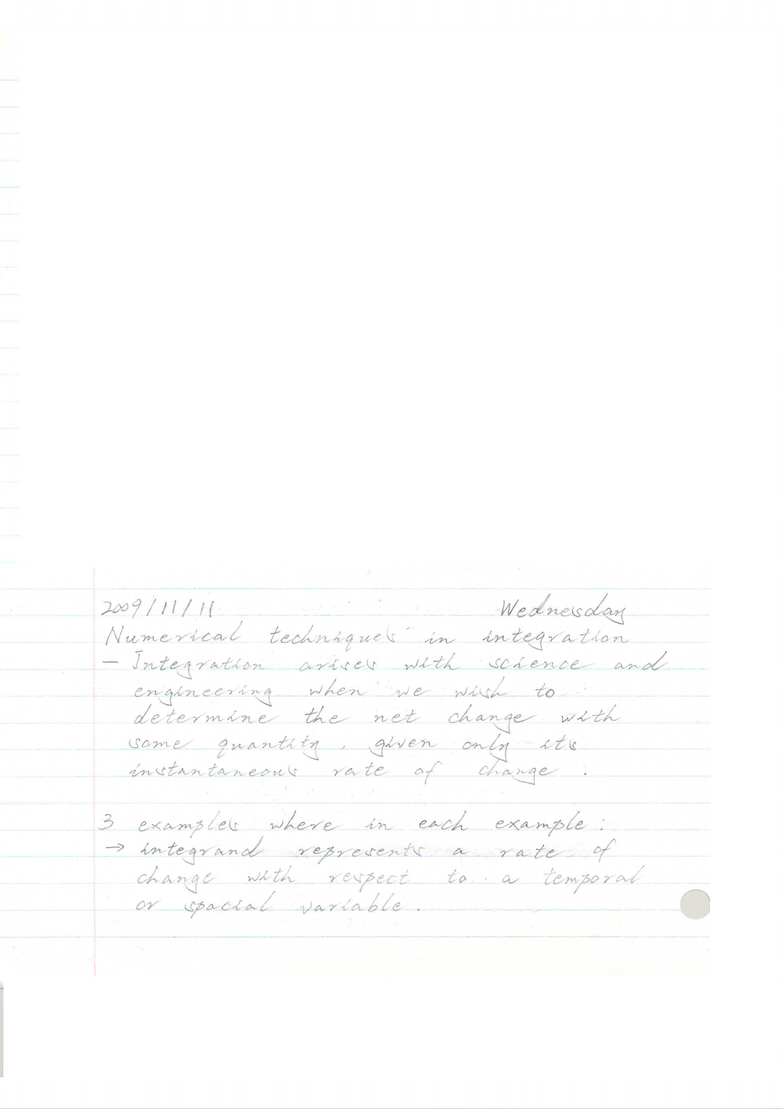 2009/11/11 Wednesday
Numerical techniques in integration
– Integration arises with science and
engineering when we wish to
determine the net change with
some quantity, given only its
instantaneous rate of change.
3 examples where in each example:
→ integrand represents a rate of
change with respect to a temporal
or spacial variable.